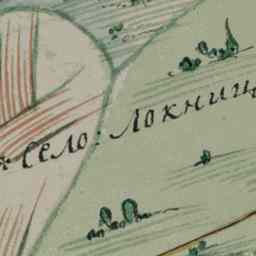 село: локниц